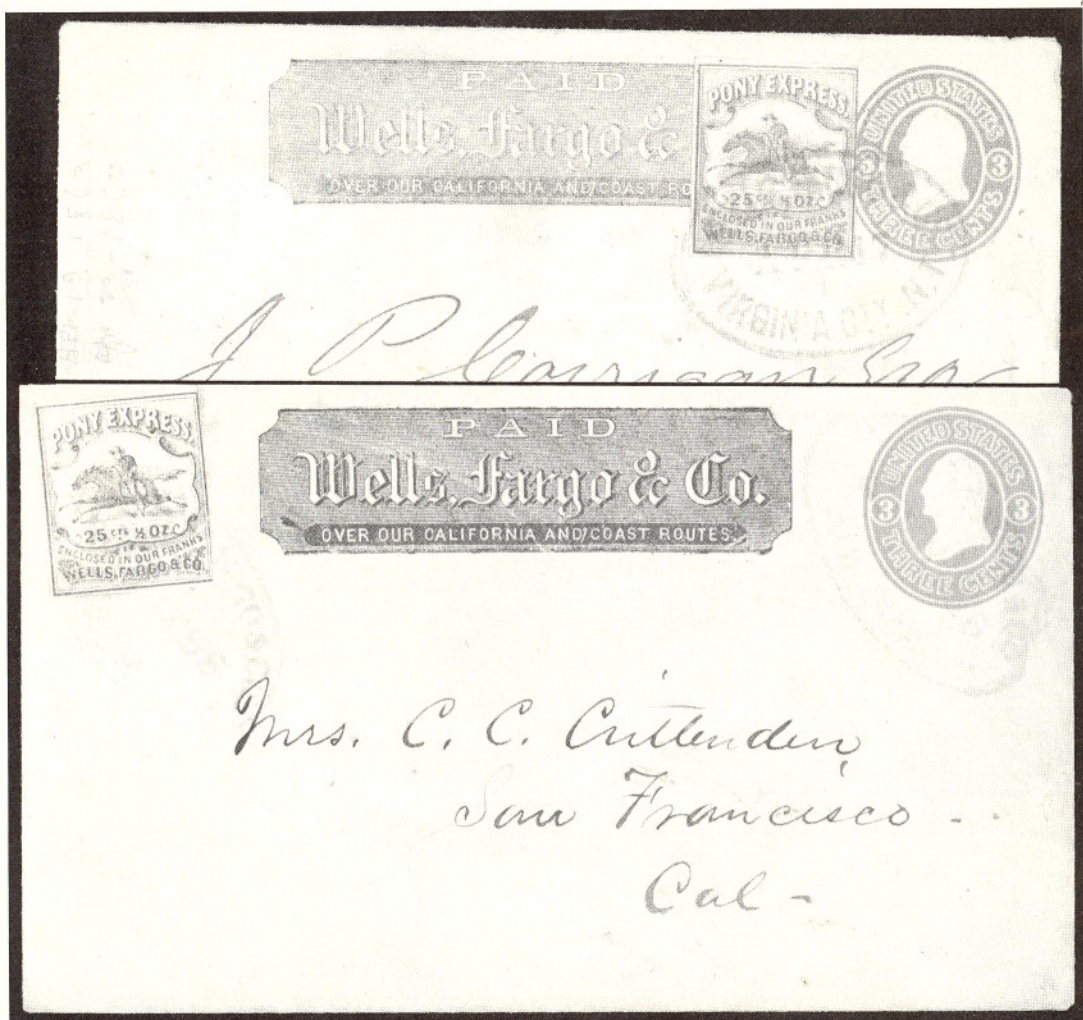 PAID
Wells, Fargo &
OVER OUR CALIFORNIA AND COAST RO
PONY EXPRESS.
25 CTS ½ OZ.
ENCLOSED IN OUR FRANKS
WELLS, FARGO & CO.
UNITED STATES
3 3
THREE CENTS
VIRGINIA CITY, N.T.
J P Corrigan Esq
PONY EXPRESS.
25 CTS ½ OZ.
ENCLOSED IN OUR FRANKS
WELLS, FARGO & CO.
PAID
Wells, Fargo & Co.
OVER OUR CALIFORNIA AND COAST ROUTES.
UNITED STATES
3 3
THREE CENTS
Mrs. C. C. Crittenden,
San Francisco -
Cal -